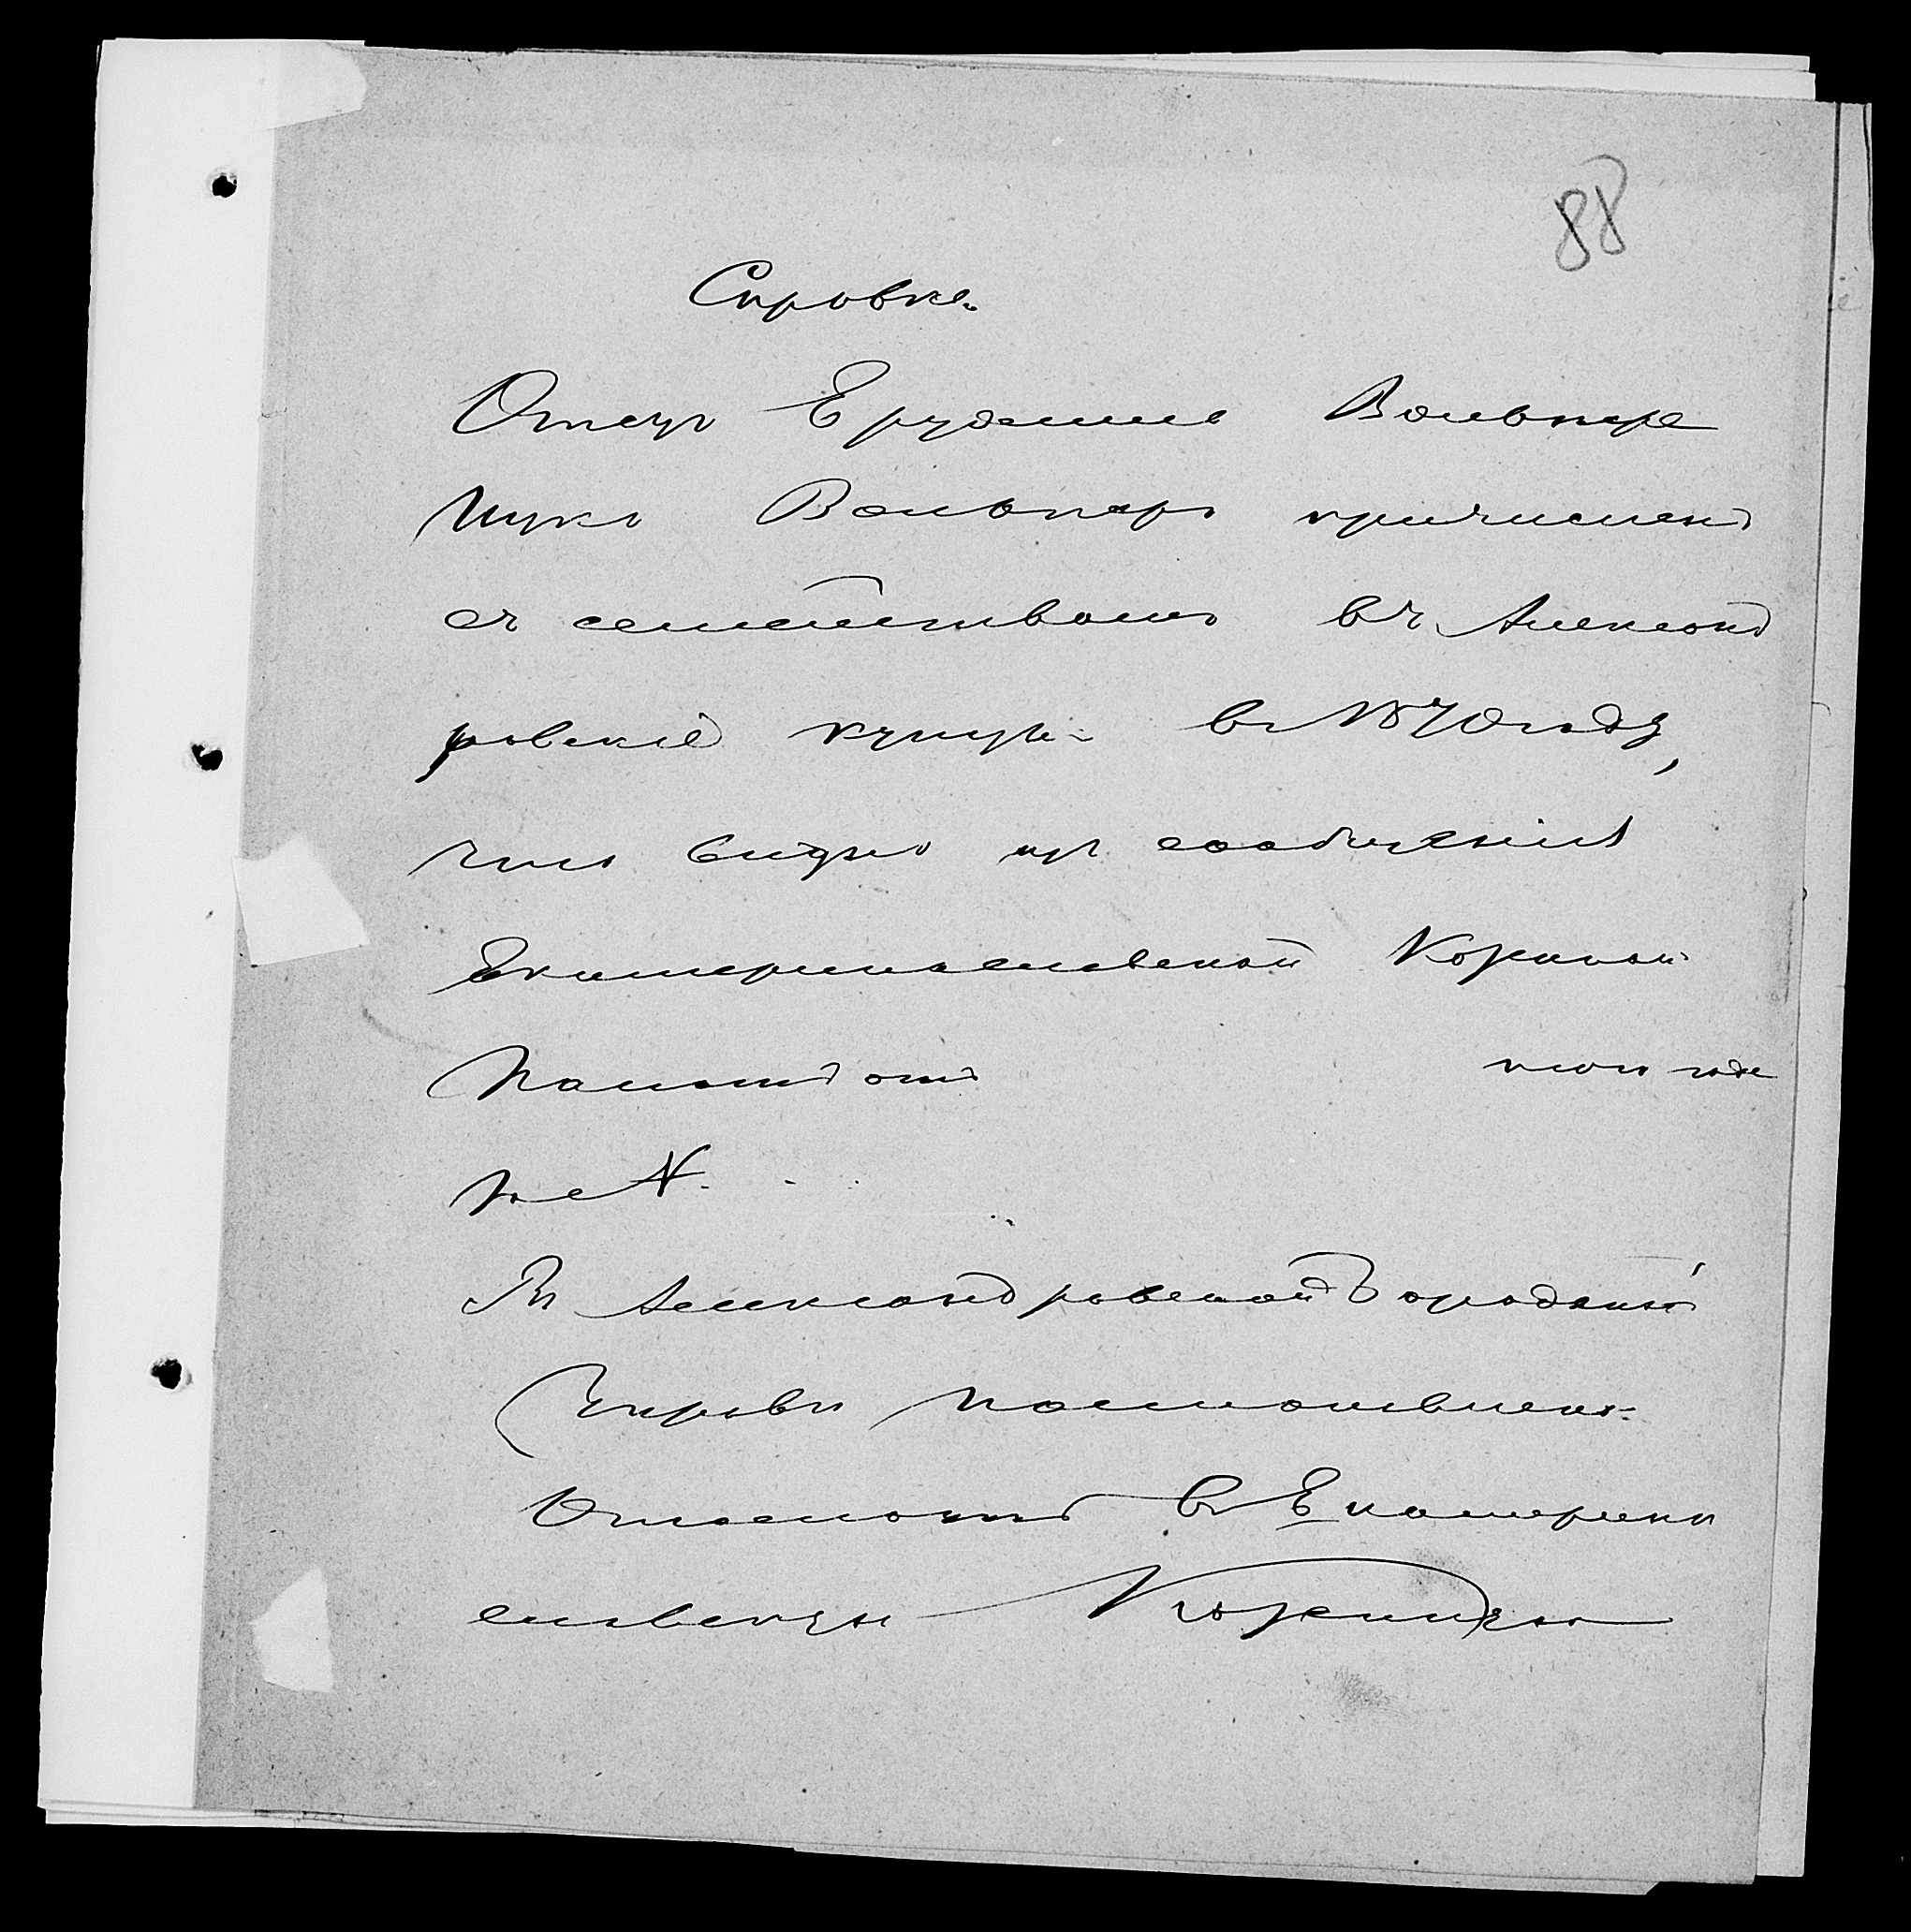 88
Справка.
Отецъ Ерухима Вольпера
Ицко Вольперъ причисленъ
съ семействомъ въ Александ
ровскіе купцы въ 1870 году,
что видно изъ сообщенія
Екатеринославской Казенной
Палаты отъ того года
за №
Въ Александровской Городской
Управѣ
въ Екатерино
славскую Казенную